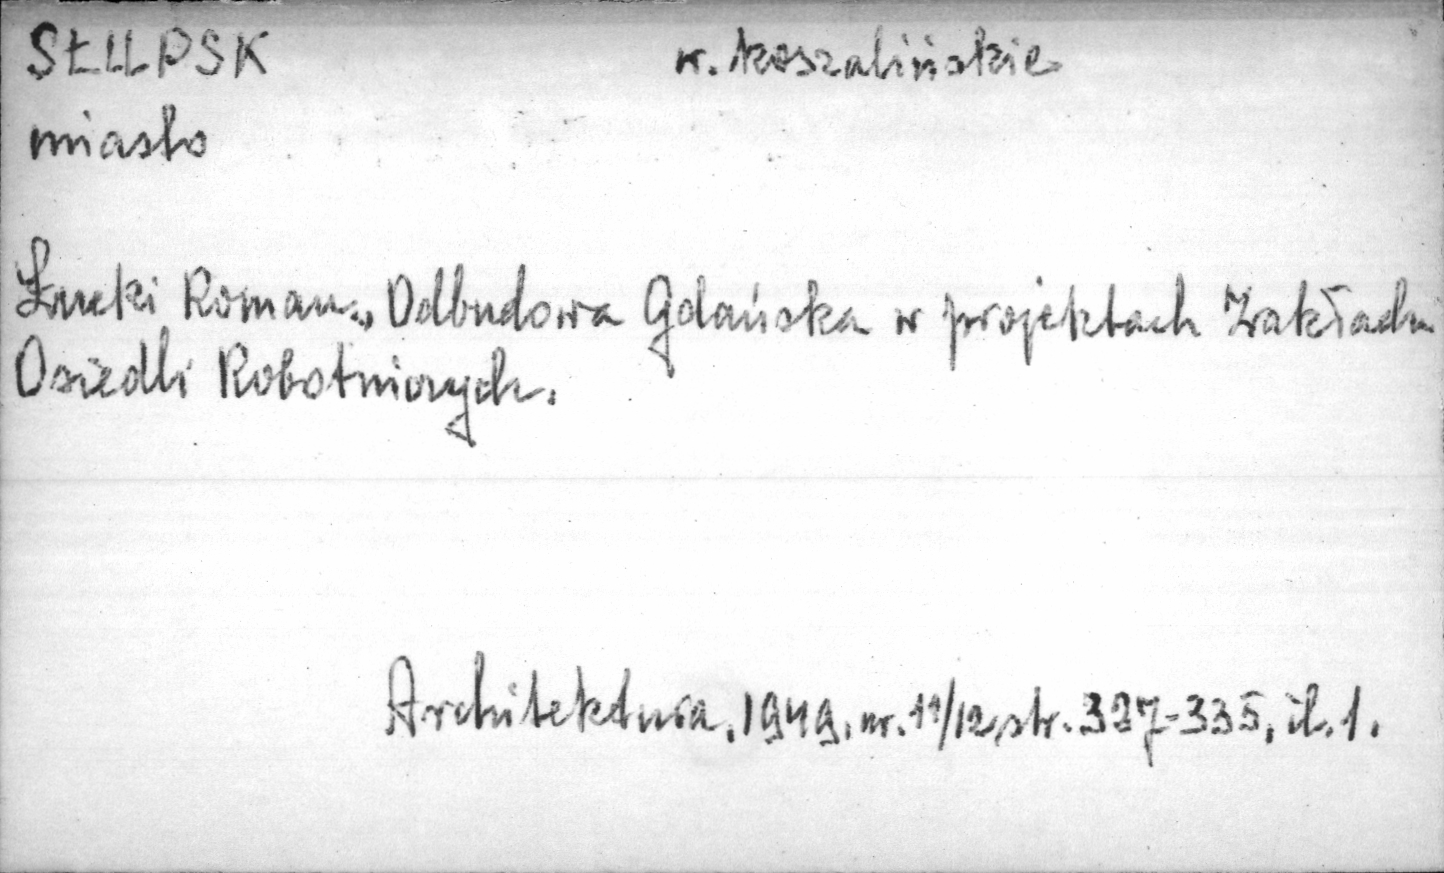 SŁUPSK w. koszalińskie
miasto
Łucki Roman., Odbudowa Gdańska w projektach Zakładu
Osiedli Robotniczych.
Architektura, 1949, nr. 11/12, str. 327-335, il. 1.